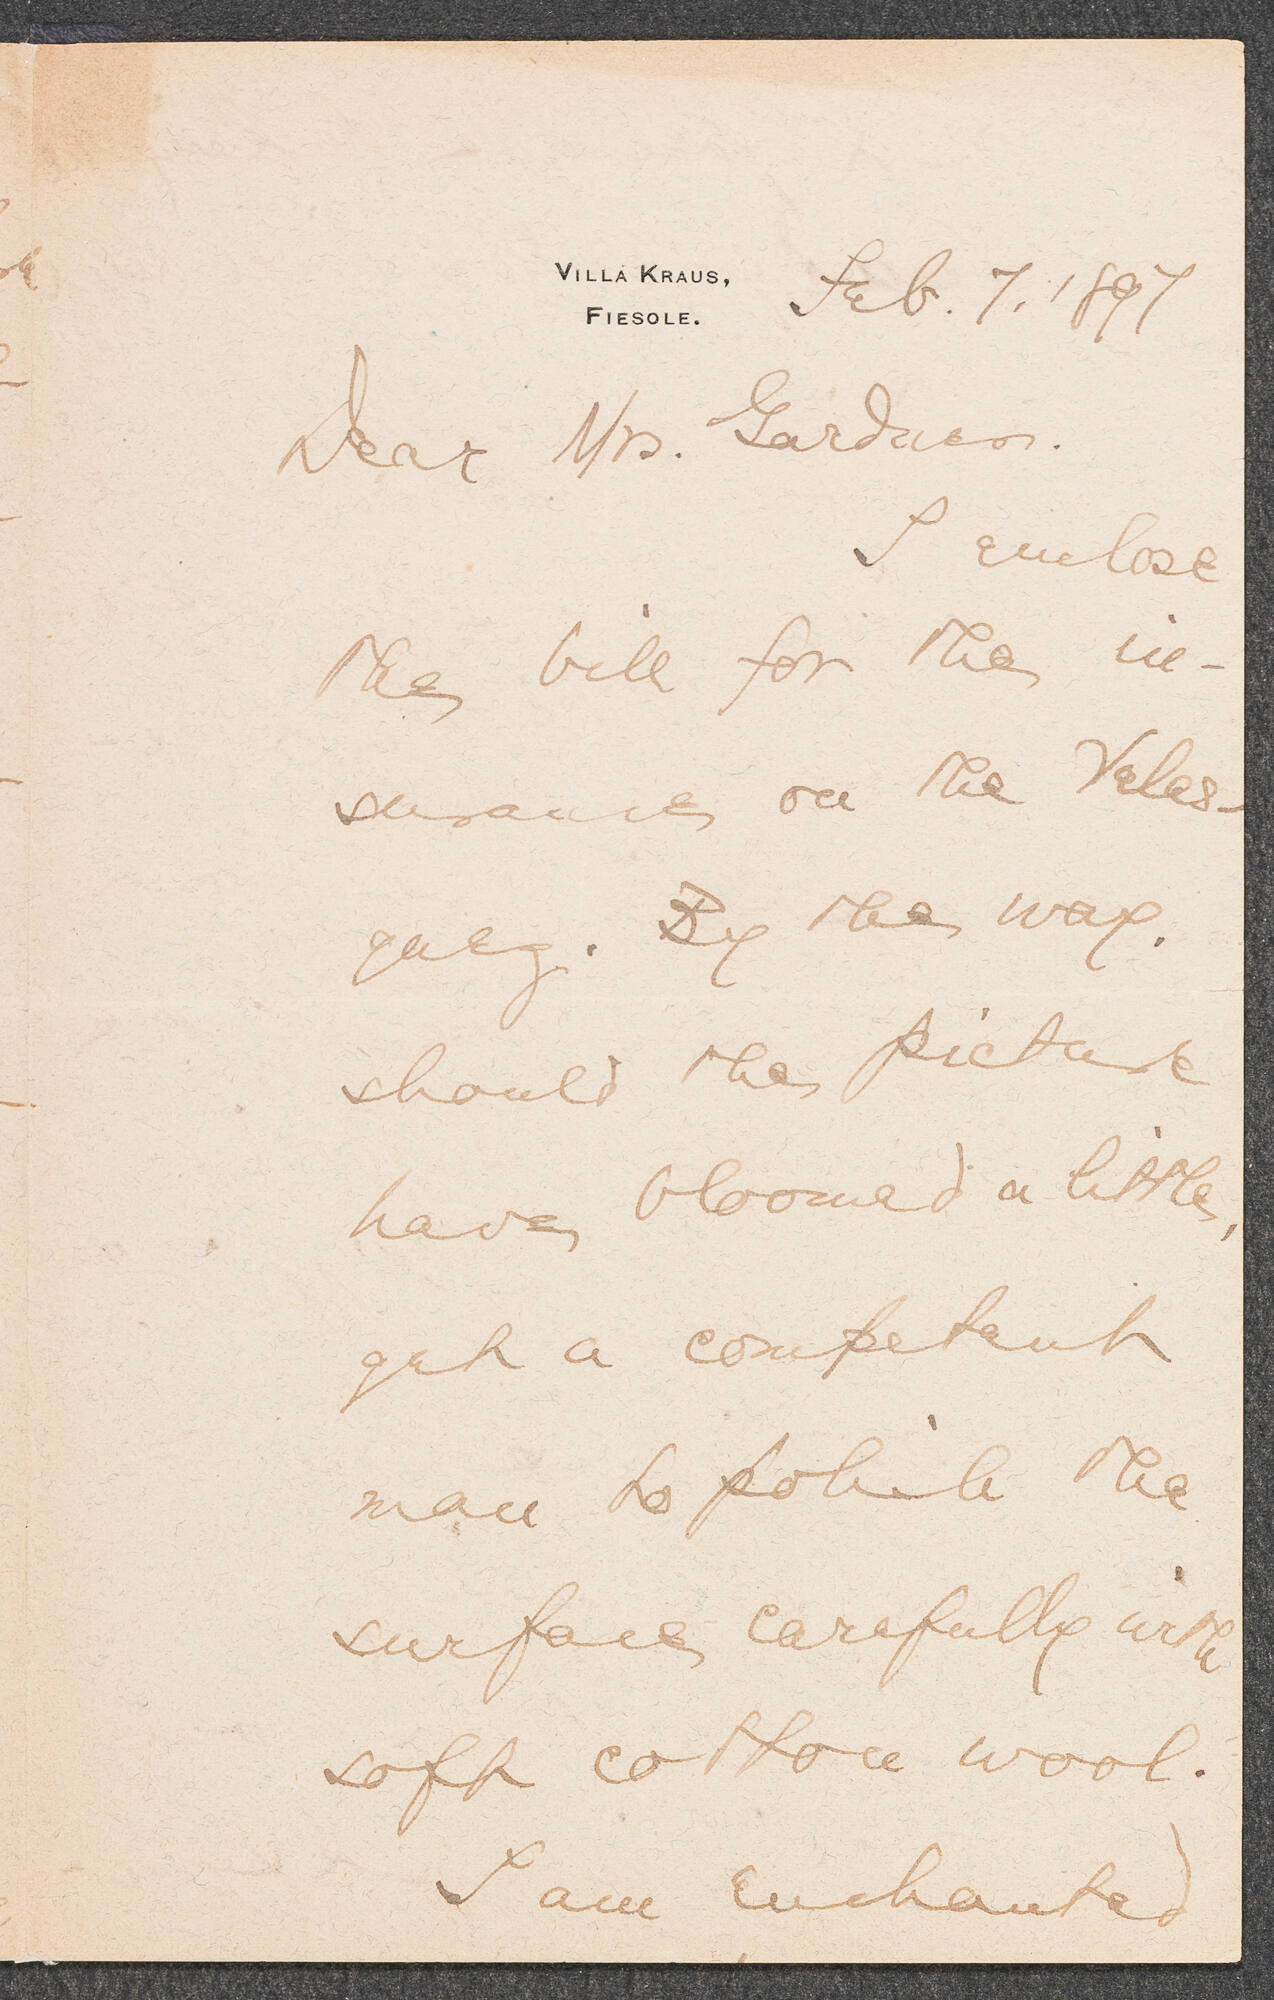 VILLA KRAUS,
FIESOLE.
Feb. 7, 1897
Dear Mrs. Gardner.
I enclose
the bill for the in-
surance on the Velas-
quez. By the way,
should the picture
have bloomed a little,
get a competent
man to polish the
surface carefully with
soft cotton wool.
I am enchanted